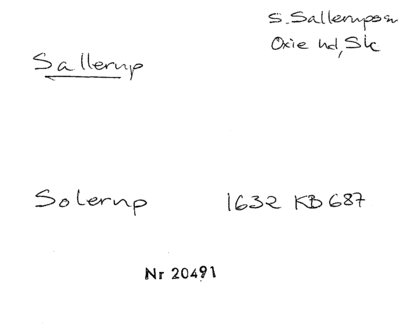 S. Sallerups sn
Oxie hd, Sk
Sallerup
Solerup 1632 KB 687
Nr 20491